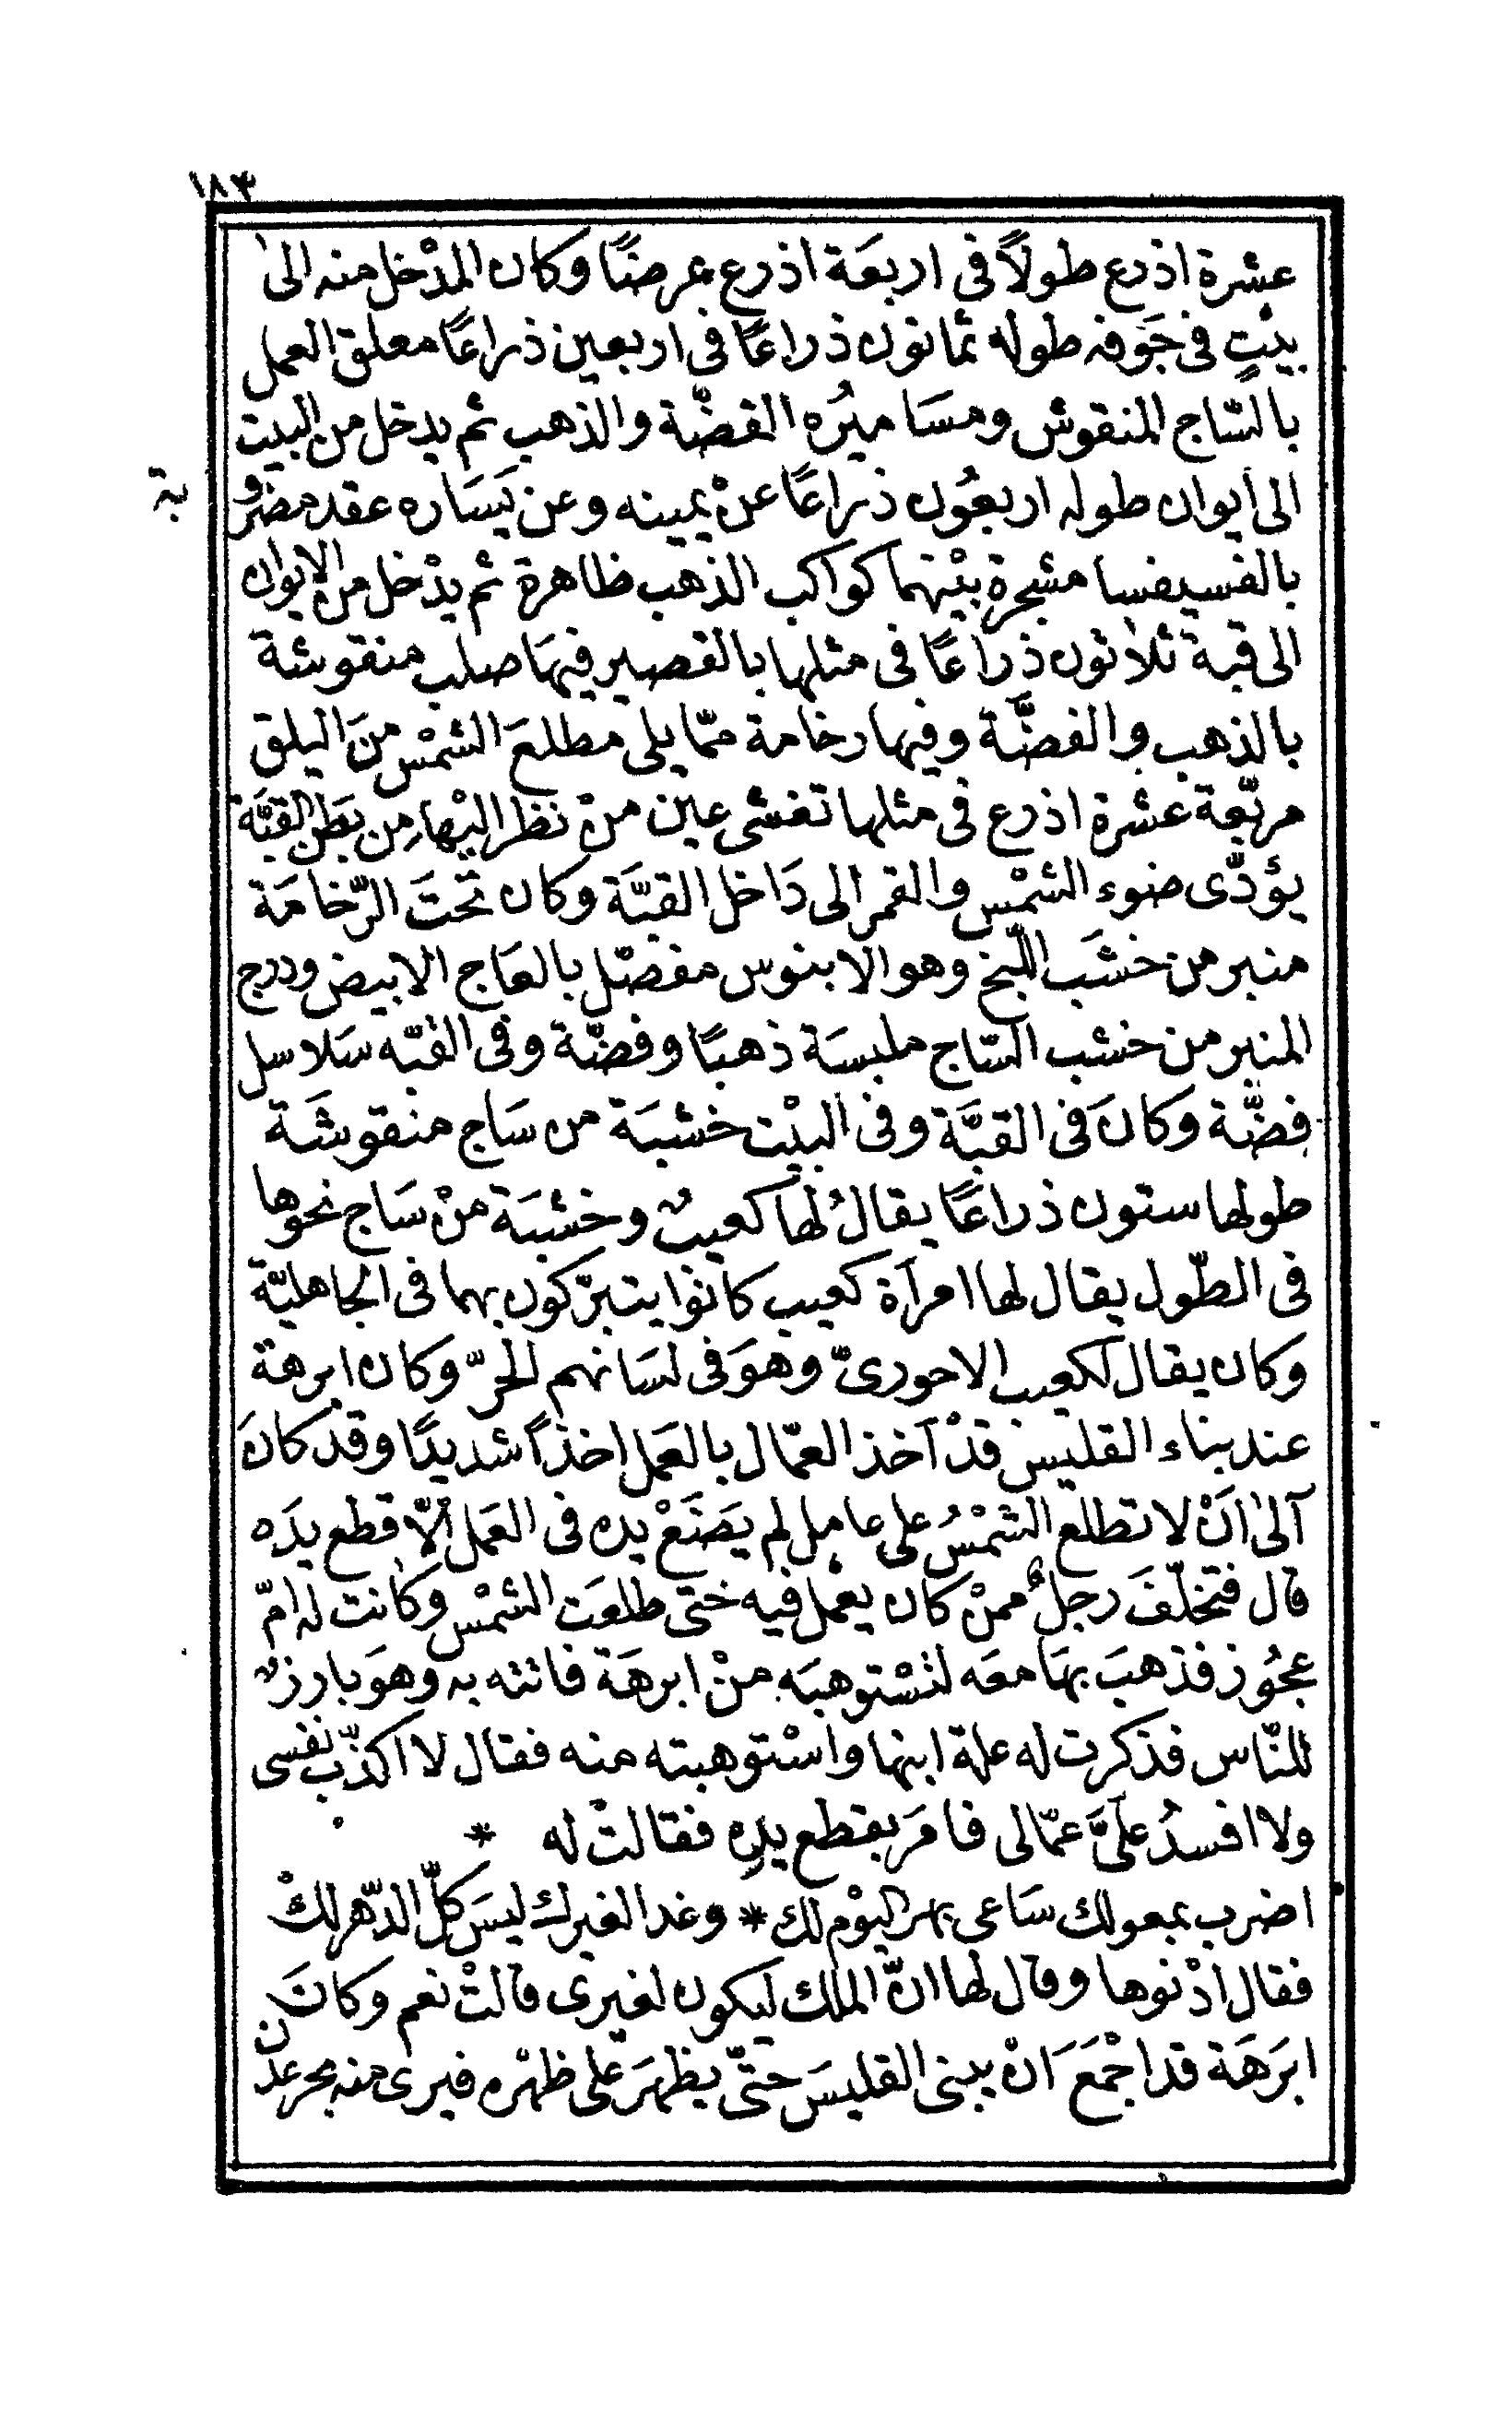 ١٨٣
عشرة اذرع طولاً فى اربعَة اذرع عرضًا وكان المدْخل منه الى
بيْتٍ فى جَوفه طوله ثمانون ذراعًا فى اربعين ذراعًا معلق العمل
بالسّاج المنقوش ومسَاميرُه الفضّة والذهب ثم يدخل من البيت
الى ايوان طوله اربعُون ذراعًا عنْ يمينه وعن يَسَاره عقد مضرو
بة
بالفسيفسا مشجرة بيْنهما كواكب الذهب ظاهرة ثم يدْخل من الايوان
الى قبة ثلاثون ذراعًا فى مثلها بالقصير فيهَا صلب منقوشة
بالذهب والفضَّة وفيها رخامة ممّا يلى مطلعَ الشمْس منَ البلق
مربّعة عشرة اذرع فى مثلها تغشى عين منْ نظر اليْها من بَطن القبَّة
يؤدّى ضوء الشمْس والقمر الى دَاخل القبَّة وكان تحتَ الرّخامَة
منبر من خشَب اللّبخ وهو الابنوس مفصّل بالعَاج الابيض ودرج
المنبر من خشب السّاج ملبسَة ذهبًا وفضّة وفى القبّه سَلاسل
فضّة وكانَ فى القبَّة وفى البيْت خشبَة من سَاج منقوشَة
طولها ستون ذراعًا يقالُ لها كعيبٌ وخشبَة منْ سَاج نحوها
فى الطّول يقال لها امرآة كعيب كانوا يتبرّكون بهما فى الجاهليّة
وكان يقال لكعيب الاحورىّ وهوَ فى لسَانهم الحرّ وكان ابرهة
عند بناء القليس قدْ آخذ العمّال بالعَمل اخذًا شديدًا وقد كانَ
آلىٰ اَنْ لا تطلع الشمْسُ على عامل لم يصَنَعْ يده فى العَمل الّا قطع يدَه
قال فتخلّفَ رجلٌ ممنْ كان يعْمل فيه حتى طلعَت الشمْس وكانت له امّ
عجُوز فذهبَ بهَا معَه لتسْتوهبَه منْ ابرهَة فاتته به وهوَ بارزٌ
للنّاس فذكرت له علة ابنها واسْتوهبته منه فقال لا اكذّب نفسى
ولا افسدُ علىَّ عمّالى فامَر بقطع يدِه فقالتْ له *
اضرب بمعولك سَاعى بهر اليوْم لك * وغدا لغيرك ليسَ كلّ الدّهر لكْ
فقال ادْنوها وقال لها انّ الملك ليكون لغيرى قالتْ نعم وكانَ
ابرَهَة قد اجْمَعَ انْ يبنى القليسَ حتّى يظهرَ على ظهْره فيرى منه بحر عدن